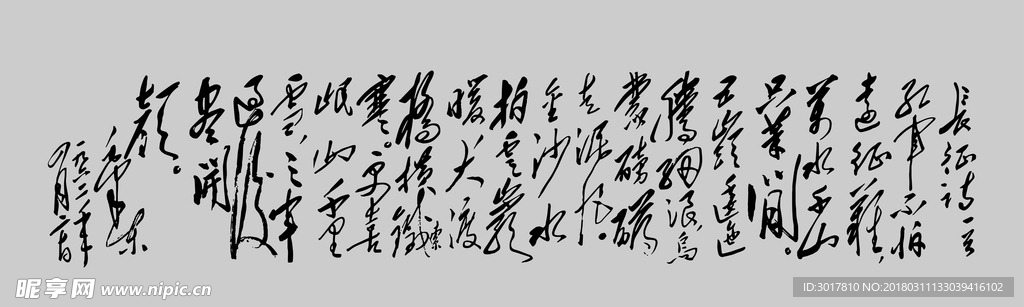 長征詩一首
紅軍不怕
遠征難，
萬水千山
只等閒。
五嶺逶迤
騰細浪，烏
蒙磅礴
走泥丸。
金沙水
拍雲巖
暖，大渡
橋橫鐵索
寒。更喜
岷山千里
雪，三軍
過後
盡開
顏。
毛澤東
一九六二年
四月二十日
昵享网 www.nipic.cn
ID:3017810 NO:20180311133039416102